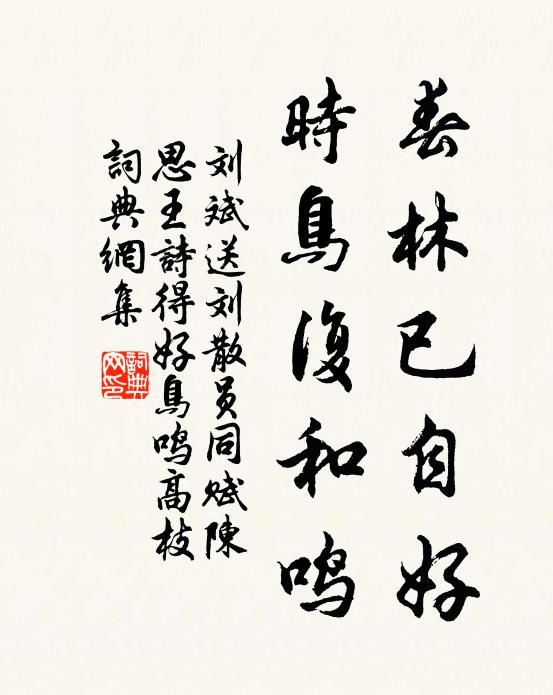 春林已自好
時鳥復和鳴
刘斌送刘散員同赋陳
思王詩得好鳥鳴高枝
詞典網集
詞典网印